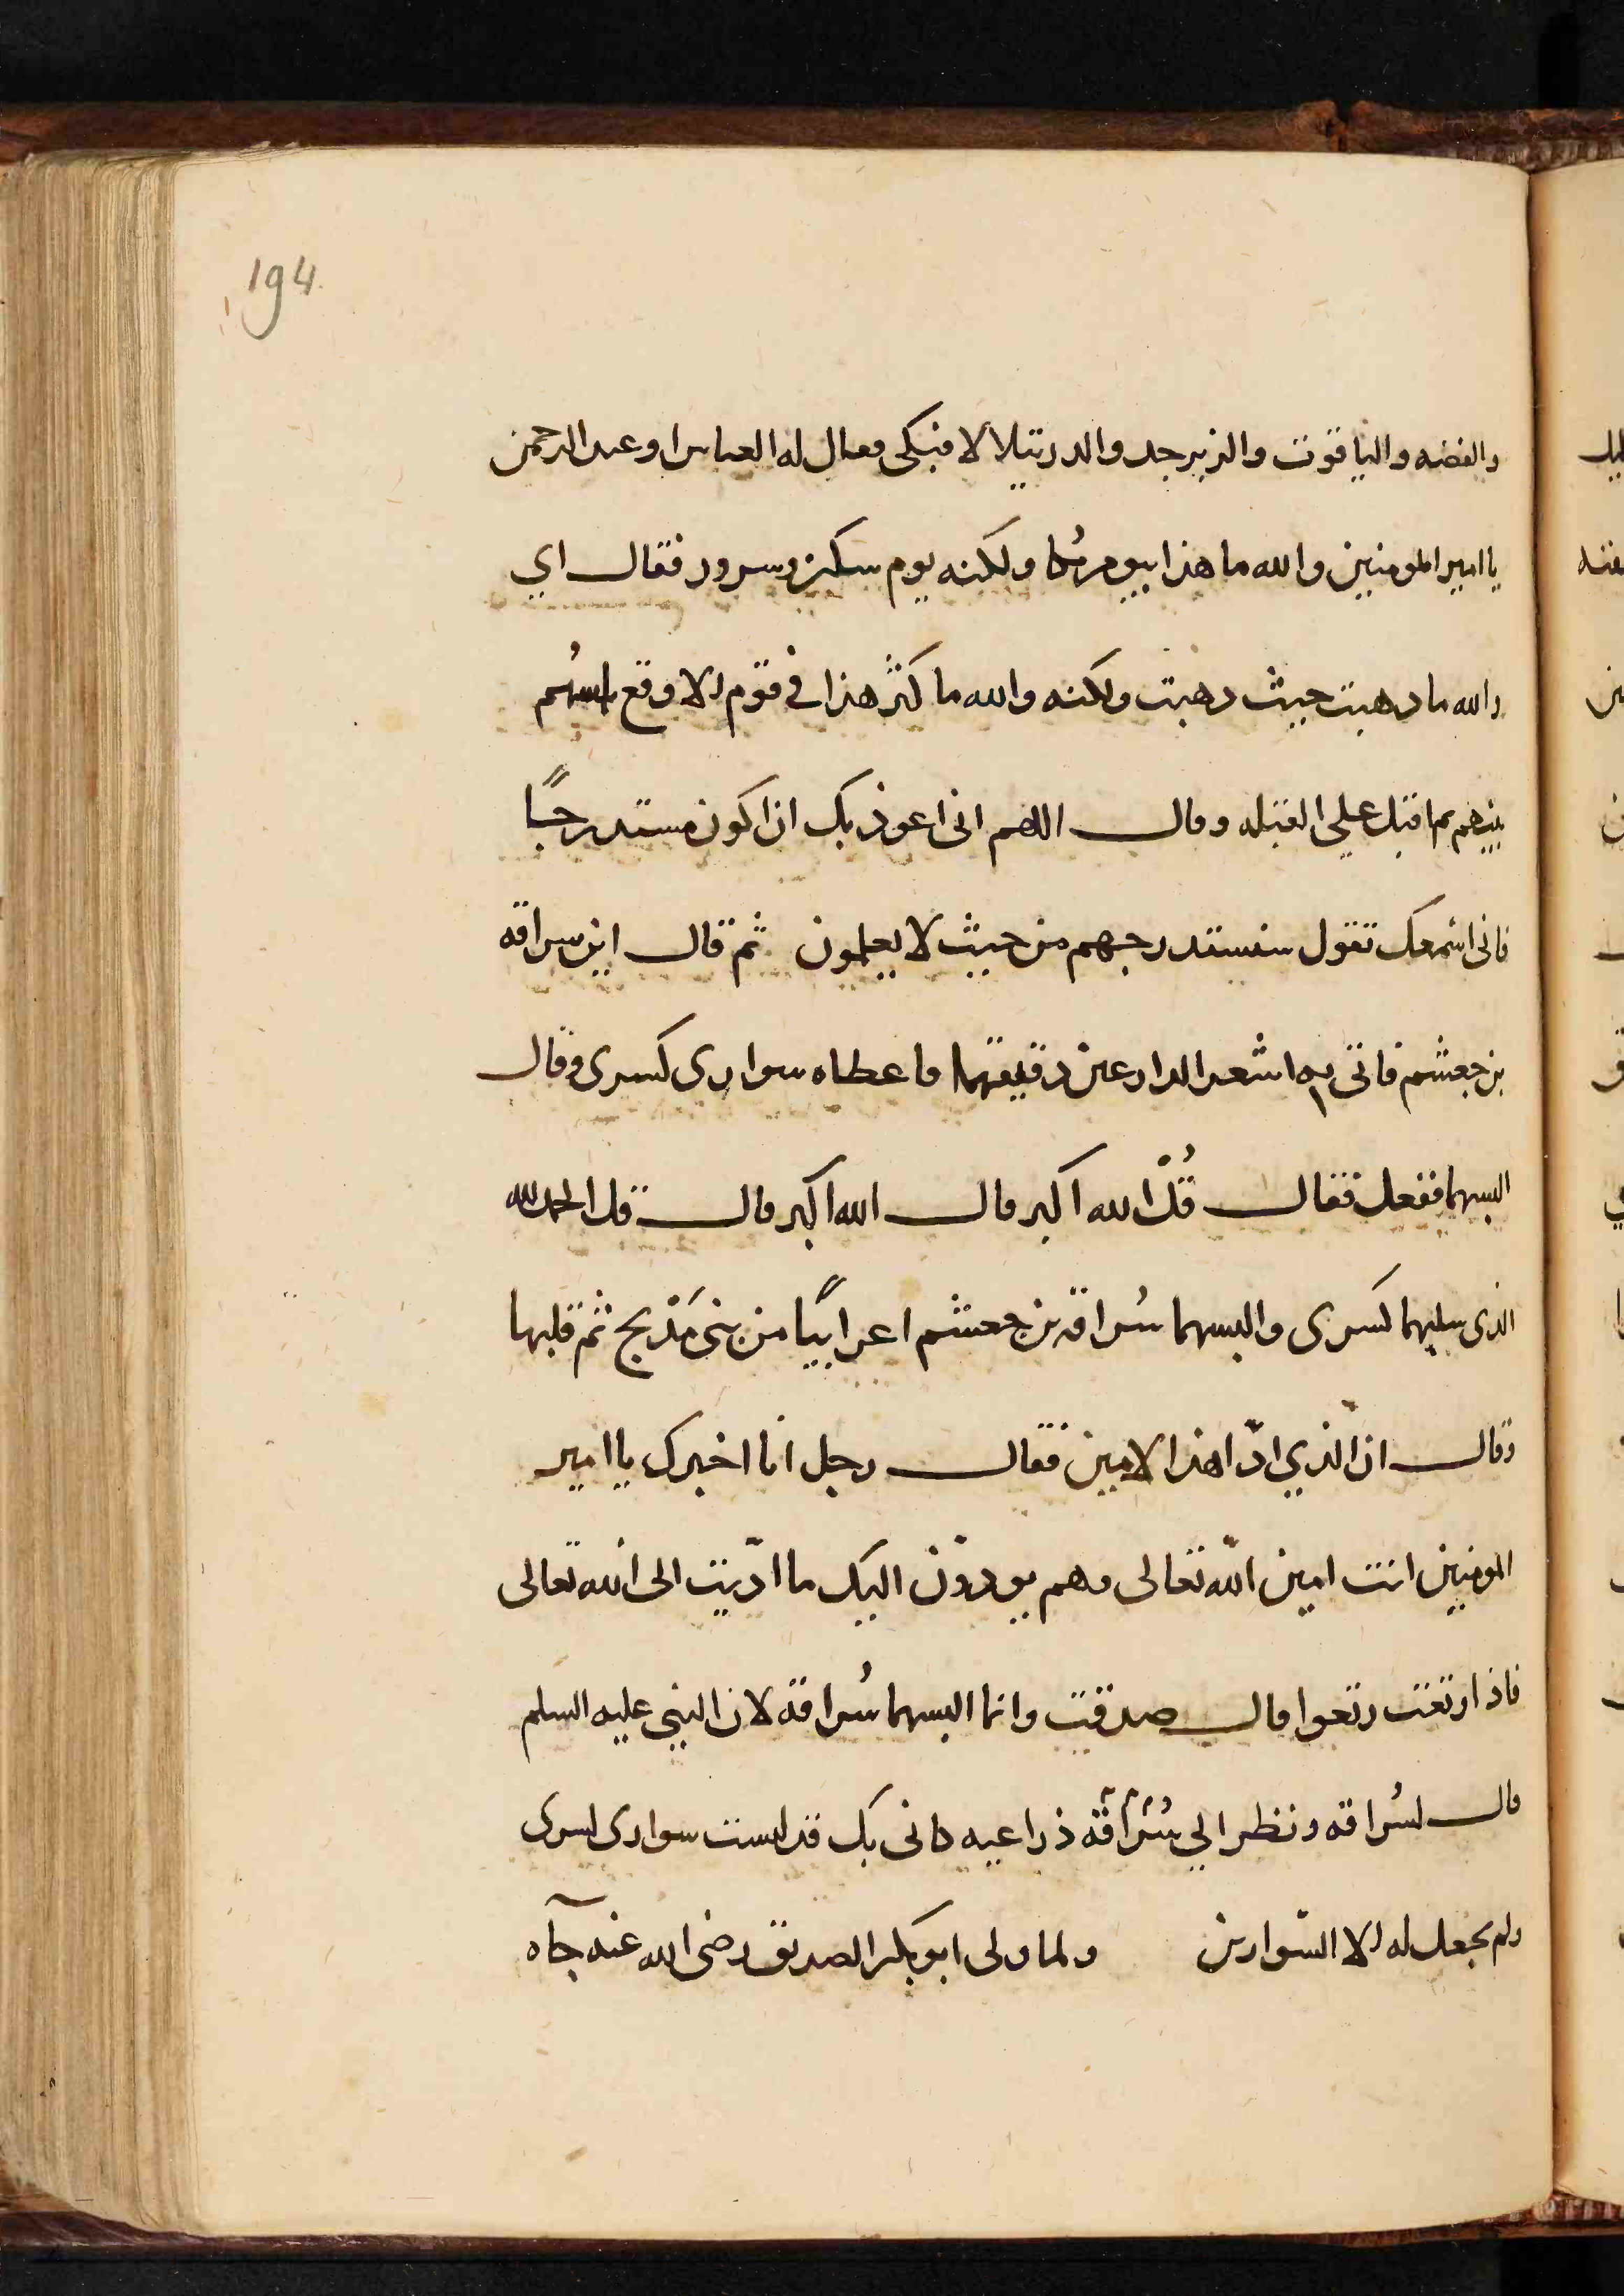 194
والفضه والياقوت والزبرجد والدر يتلالا فبكى فقال له العباس او عبد الرحمن
يا امير المومنين والله ما هذا بيوم بُكا ولكنه يوم شكر وسرور فقال اي
والله ما ذهبت حيث ذهبت ولكنه والله ما كثُر هذا في قوم الا وقع باسُهم
بينهم ثم اقبل على القبله وقال اللهم انى اعوذ بك ان اكون مستدرجًا
فانى اسمعك تقول سنستدرجهم من حيث لا يعلمون ثم قال اين سراقه
بن جعشم فاتى به اشعر الذراعين دقيقهما فاعطاه سوارى كسرى وقال
البسهما ففعل فقال قُلْ الله اكبر قال الله اكبر قال قل الحمد لله
الذى سلبهما كسرى والبسهما سُراقه بن جعشم اعرابيًا من بنى مَدْلج ثم قلبها
وقال انّ الذي ادّا هذا لامين فقال رجل انا اخبرك يا امير
المومنين انت امين الله تعالى وهم يودّون اليك ما ادّيت الى الله تعالى
فاذا رتعت رتعوا قال صدقت وانما البسهما سُراقه لان النبى عليه السلم
قال لسُراقه ونظر الي سُرَاقَه ذراعيه كانى بك قد لبست سوارى كسرى
ولم يجعل له الا السّوارين ولما ولى ابو بكر الصديق رضى الله عنه جآه